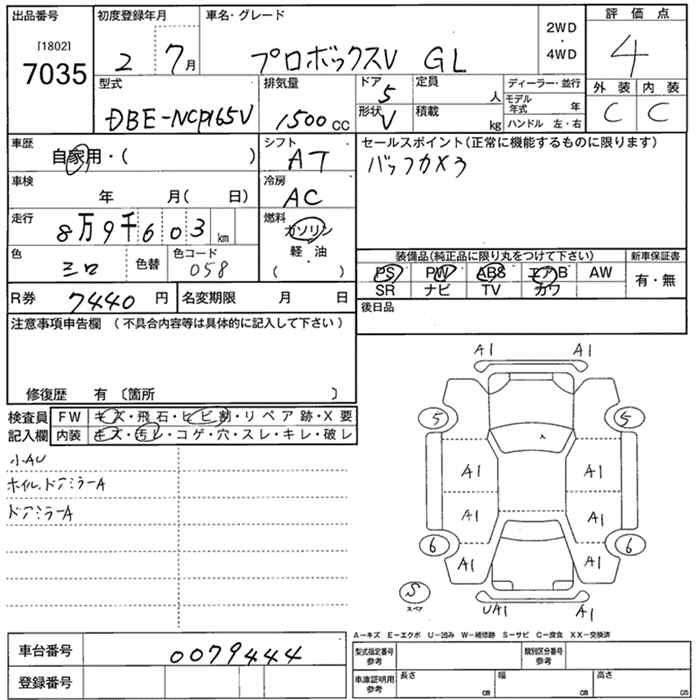 出品番号
[1802]
7035
初度登録年月
2 7月
車名・グレード
プロボックスV GL
2WD
・
4WD
評価点
4
外装 内装
C C
型式
DBE-NCP165V
排気量
1500cc
ドア
5
形状
V
定員
人
積載
kg
ディーラー・並行
モデル年式 年
ハンドル 左・右
車歴
自家用・( )
シフト
AT
車検
年 月( 日)
冷房
AC
走行
8万9千603km
燃料
ガソリン
軽・油
( )
色
シロ
色替
色コード
058
R券 7440円
名変期限 月 日
セールスポイント(正常に機能するものに限ります)
バックカメラ
装備品(純正品に限り丸をつけて下さい)
PS PW ABS エアB AW
SR ナビ TV カワ
新車保証書
有・無
後日品
注意事項申告欄 (不具合内容等は具体的に記入して下さい)
修復歴 有 〔箇所 〕
検査員
記入欄
FW キズ・飛石・ヒビ割・リペア跡・X要
内装 キズ・汚レ・コゲ・穴・スレ・キレ・破レ
小AU
ホイル.ドアミラーA
ドアミラーA
A1 A1
5 5
A1 A1
A1 A1
6 6
A1 A1
S
スペア
UA1 A1
A-キズ E-エクボ U-凹み W-補修跡 S-サビ C-腐食 XX-交換済
車台番号 0079444
登録番号
型式指定番号
参考
類別区分番号
参考
車庫証明用
参考
長さ cm
幅 cm
高さ cm